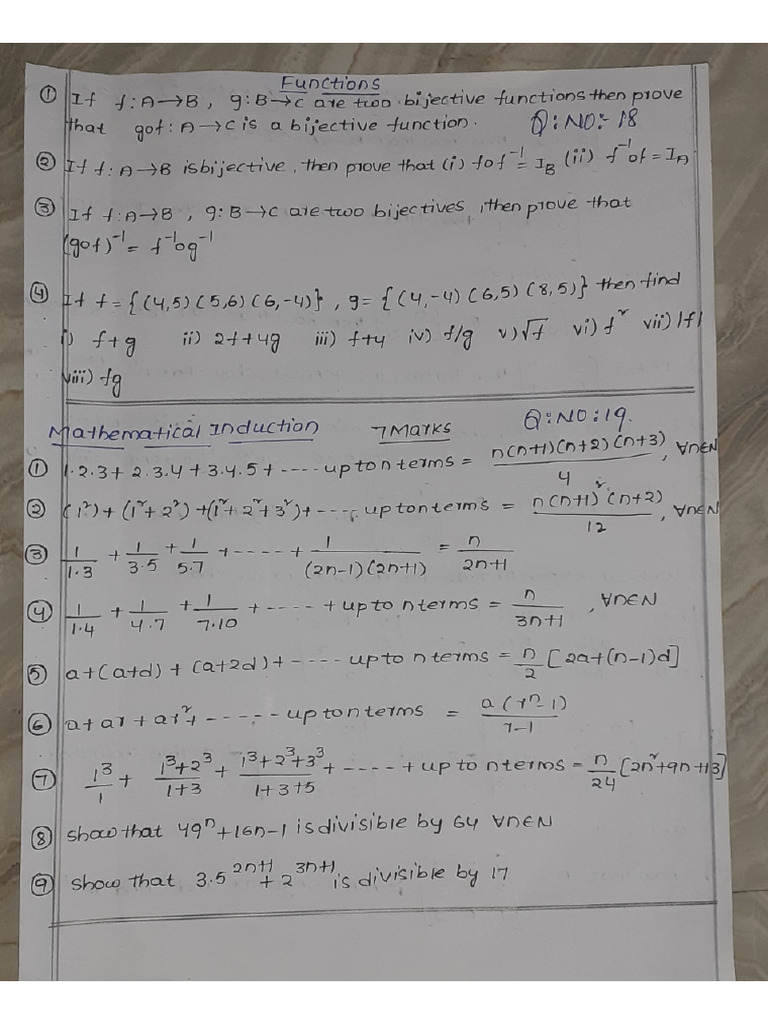 Functions
① If f: A→B, g: B→C are two bijective functions then prove
that gof: A→C is a bijective function. Q: NO:- 18
② If f: A→B is bijective, then prove that (i) fof⁻¹ = I_B (ii) f⁻¹of = I_A
③ If f: A→B, g: B→C are two bijectives, then prove that
(gof)⁻¹ = f⁻¹og⁻¹
④ If f = {(4,5) (5,6) (6,-4)}, g = {(4,-4) (6,5) (8,5)} then find
i) f+g ii) 2f+4g iii) f+4 iv) f/g v) √f vi) f² vii) |f|
viii) fg
Mathematical Induction 7 Marks Q: NO: 19.
① 1.2.3 + 2.3.4 + 3.4.5 + ---- up to n terms = n(n+1)(n+2)(n+3)/4, ∀n∈N
② (1²) + (1²+2²) + (1²+2²+3²) + ---- up to n terms = n(n+1)²(n+2)/12, ∀n∈N
③ 1/1.3 + 1/3.5 + 1/5.7 + ---- + 1/(2n-1)(2n+1) = n/2n+1
④ 1/1.4 + 1/4.7 + 1/7.10 + ---- + up to n terms = n/3n+1, ∀n∈N
⑤ a+(a+d) + (a+2d) + ---- up to n terms = n/2 [2a+(n-1)d]
⑥ a + ar + ar² + ----- up to n terms = a(rⁿ-1)/r-1
⑦ 1³/1 + 1³+2³/1+3 + 1³+2³+3³/1+3+5 + ---- + up to n terms = n/24 [2n²+9n+13]
⑧ show that 49ⁿ+16n-1 is divisible by 64 ∀n∈N
⑨ show that 3.5²ⁿ⁺¹ + 2³ⁿ⁺¹ is divisible by 17